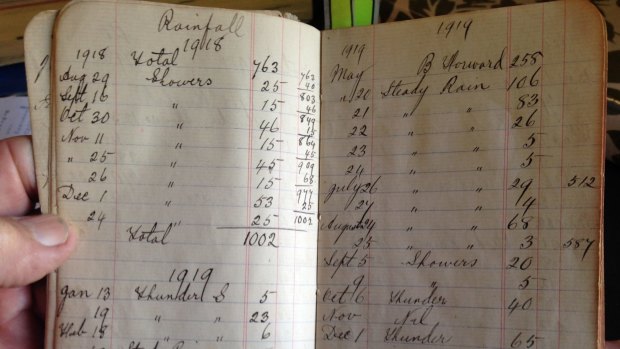 Rainfall
1918 Total 1918 763
Aug 29 Showers 25
Sept 16 " 15
Oct 30 " 46
Nov 11 " 15
" 25 " 45
26 " 15
Dec 1 " 53
24 " 25
Total 1002
763
40
803
46
849
15
864
45
909
68
977
25
1002
1919
Jan 13 Thunder S 5
19 " " 23
Feb 18 " " 6
1919
1919
May B Forward 255
" 20 Steady Rain 106
21 " " 83
22 " " 26
23 " " 5
24 " " 5
July 26 " " 29 512
27 " " 4
August 24 " " 68
25 " " 3 587
Sept 5 Showers 20
9 " 5
Oct 6 Thunder 40
Nov Nil
Dec 1 Thunder 65